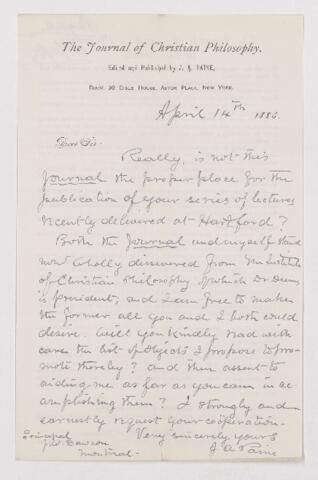 The Journal of Christian Philosophy.
Edited and Published by J. A. PAINE,
ROOM 30 BIBLE HOUSE, ASTOR PLACE, NEW YORK.
April 14th 1883.
Dear Sir:
Really, is not this
Journal the proper place for the
publication of your series of lectures
recently delivered at Hartford?
Both the Journal and myself stand
now wholly divorced from the Institute
of Christian Philosophy of which Dr Deems
is president, and I am free to make
the former all you and I both could
desire. Will you kindly read with
care the list of objects I propose to pro-
mote thereby? and then assent to
aiding me as far as you can in ac-
complishing them? I strongly and
earnestly request your coöperation.
Very sincerely yours
J A Paine
Principal
J. W. Dawson
Montreal.